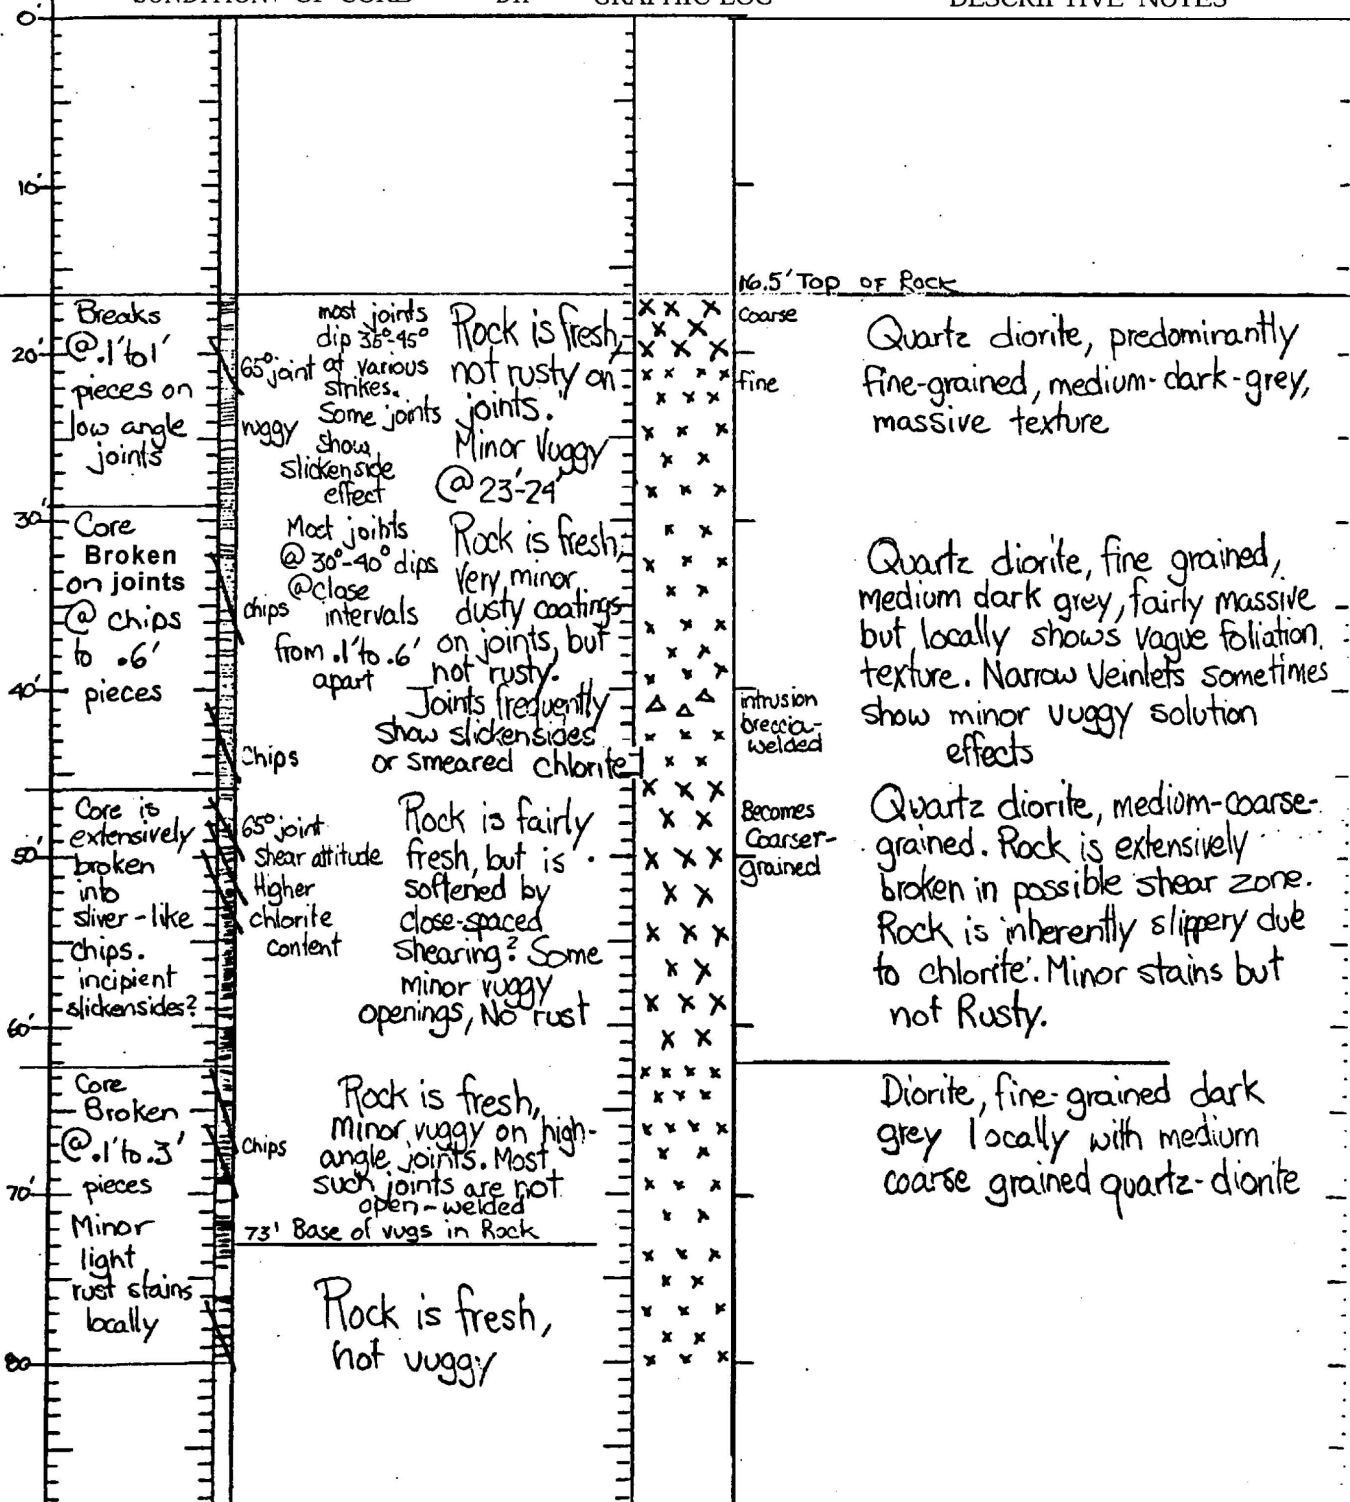 CONDITION OF CORE DIP GRAPHIC LOG DESCRIPTIVE NOTES
0'
10'
20'
30'
40'
50'
60'
70'
80
Breaks
@ .1' to 1'
pieces on
low angle
joints
Core
Broken
on joints
@ chips
to .6'
pieces
Core is
extensively
broken
into
sliver-like
chips.
incipient
slickensides?
Core
Broken
@ .1' to .3'
pieces
Minor
light
rust stains
locally
65° joint
vuggy
most joints
dip 35°-45°
at various
strikes.
Some joints
show
slickenside
effect
Rock is fresh,
not rusty on
joints.
Minor Vuggy
@ 23'-24'
chips
Most joints
@ 30°-40° dips
@close
intervals
from .1' to .6'
apart
Rock is fresh,
Very minor
dusty coatings
on joints, but
not rusty.
Joints frequently
show slickensides
or smeared chlorite
Chips
65° joint
shear attitude
Higher
chlorite
content
Rock is fairly
fresh, but is
softened by
close-spaced
shearing? Some
minor vuggy
openings, No rust
Chips
Rock is fresh,
minor vuggy on high-
angle joints. Most
such joints are not
open-welded
73' Base of vugs in Rock
Rock is fresh,
not vuggy
16.5' Top OF Rock
Coarse
fine
intrusion
breccia-
welded
Becomes
Coarser-
grained
Quartz diorite, predominantly
fine-grained, medium-dark-grey,
massive texture
Quartz diorite, fine grained,
medium dark grey, fairly massive
but locally shows vague foliation
texture. Narrow Veinlets sometimes
show minor vuggy solution
effects
Quartz diorite, medium-coarse-
grained. Rock is extensively
broken in possible shear zone.
Rock is inherently slippery due
to chlorite. Minor stains but
not Rusty.
Diorite, fine-grained dark
grey locally with medium
coarse grained quartz-diorite